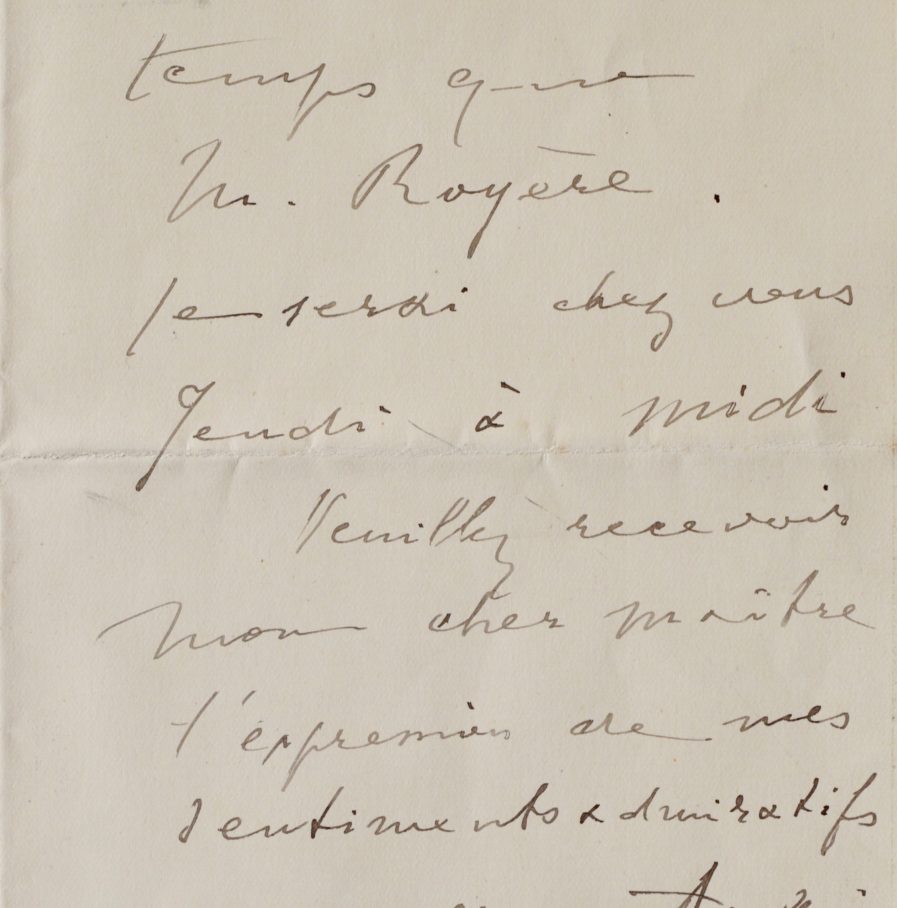 temps que
M. Royère.
Je serai chez vous
Jeudi à midi
Veuillez recevoir
mon cher maître
l'expression de mes
sentiments admiratifs